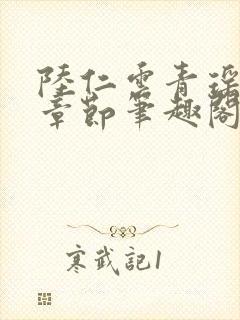 陸仁雲青瑶
章節筆趣閣
寒武記1